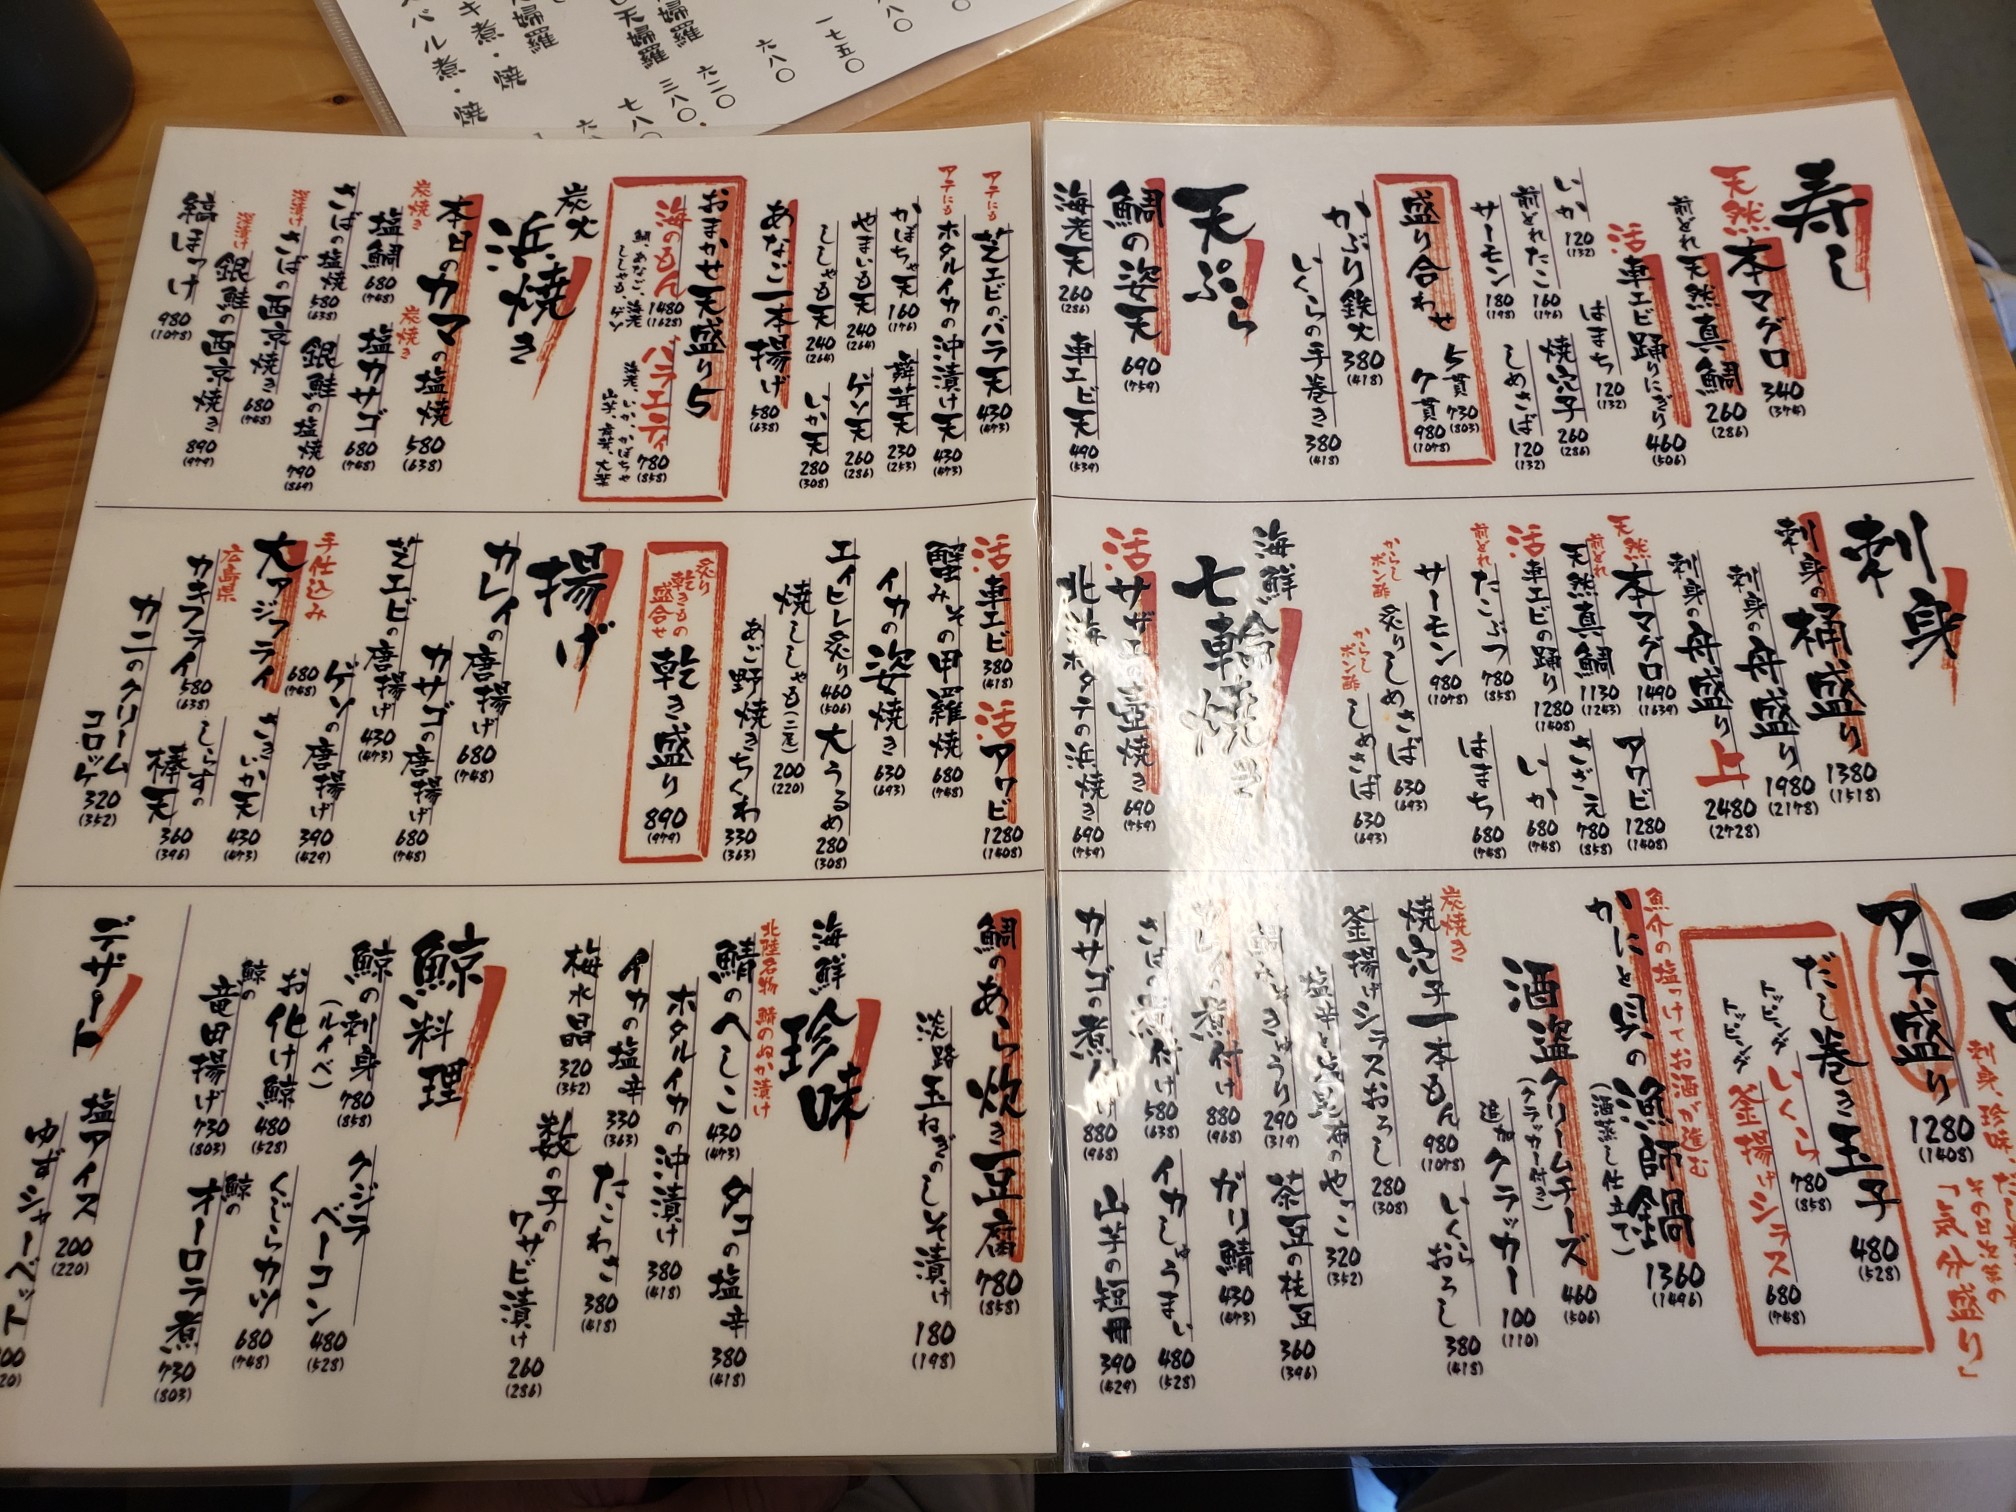 寿し
天然 本マグロ 340 (374)
前どれ 天然真鯛 260 (286)
活 車エビ踊りにぎり 460 (506)
いか 120 (132)
はまち 120 (132)
前どれ たこ 160 (176)
焼穴子 260 (286)
サーモン 180 (198)
しめさば 120 (132)
盛り合わせ 5貫 730 (803)
7貫 980 (1078)
かぶり鉄火 380 (418)
いくらの手巻き 380 (418)
天ぷら
鯛の姿天 690 (759)
海老天 260 (286)
車エビ天 490 (539)
芝エビのバラ天 430 (473)
アテにも
ホタルイカの沖漬け天 430 (473)
アテにも
かぼちゃ天 160 (176)
舞茸天 230 (253)
やまいも天 240 (264)
ゲソ天 260 (286)
ししゃも天 240 (264)
いか天 280 (308)
あなご一本揚げ 580 (638)
おまかせ天盛り5
海のもん 1480 (1628)
鯛、あなご、海老
ししゃも、ゲソ
バラエティ 780 (858)
海老、いか、かぼちゃ
炭火 浜焼き
本日のカマの塩焼 580 (638)
炭焼き 塩鯛 680 (748)
炭焼き 塩カサゴ 680 (748)
さばの塩焼 580 (638)
銀鮭の塩焼 790 (869)
さばの西京焼き 680 (748)
銀鮭の西京焼き 890 (979)
縞ほっけ 980 (1078)
刺身
刺身の桶盛り 1380 (1518)
刺身の舟盛り 1980 (2178)
刺身の舟盛り 上 2480 (2728)
天然 本マグロ 1490 (1639)
アワビ 1280 (1408)
前どれ 天然真鯛 1130 (1243)
さざえ 780 (858)
活 車エビの踊り 1280 (1408)
いか 680 (748)
前どれ たこぶつ 780 (858)
はまち 680 (748)
サーモン 980 (1078)
からしポン酢 炙りしめさば 630 (693)
からしポン酢 しめさば 630 (693)
海鮮 七輪焼き
活 サザエの壺焼き 690 (759)
北海ホタテの浜焼き 690 (759)
活 車エビ 380 (418)
活 アワビ 1280 (1408)
蟹みその甲羅焼 680 (748)
イカの姿焼き 630 (693)
エイヒレ炙り 460 (506)
大うるめ 280 (308)
焼ししゃも(二尾) 200 (220)
あご野焼きちくわ 330 (363)
炙り乾きもの盛合せ 乾き盛り 890 (979)
揚げ
カレイの唐揚げ 680 (748)
カサゴの唐揚げ 680 (748)
芝エビの唐揚げ 430 (473)
ゲソの唐揚げ 390 (429)
手仕込み 大アジフライ 680 (748)
さきいか天 430 (473)
広島県 カキフライ 580 (638)
しらすの棒天 360 (396)
カニのクリームコロッケ 320 (352)
アテ盛り 1280 (1408)
「気分盛り」
だし巻き玉子 480 (528)
トッピング いくら 780 (858)
トッピング 釜揚げシラス 680 (748)
魚介の塩っけでお酒が進む
かにと貝の漁師鍋 1360 (1496)
(酒蒸し仕立て)
酒盗クリームチーズ 460 (506)
(クラッカー付き)
追加クラッカー 100 (110)
炭焼き 焼穴子一本もん 980 (1078)
いくらおろし 380 (418)
釜揚げシラスおろし 280 (308)
320 (352)
290 (319)
茶豆の枝豆 360 (396)
煮付け 880 (968)
ガリ鯖 430 (473)
さばの煮付け 580 (638)
イカしゅうまい 480 (528)
カサゴの煮付け 880 (968)
山芋の短冊 390 (429)
鯛のあら炊き豆腐 780 (858)
淡路玉ねぎのしそ漬け 180 (198)
海鮮 珍味
北陸名物 鯖のぬか漬け
鯖のへしこ 430 (473)
タコの塩辛 380 (418)
ホタルイカの沖漬け 380 (418)
イカの塩辛 330 (363)
たこわさ 380 (418)
梅水晶 320 (352)
数の子のワサビ漬け 260 (286)
鯨料理
鯨の刺身 780 (858)
(ルイベ)
クジラベーコン 480 (528)
お化け鯨 480 (528)
くじらカツ 680 (748)
鯨の竜田揚げ 730 (803)
鯨のオーロラ煮 730 (803)
デザート
塩アイス 200 (220)
ゆずシャーベット